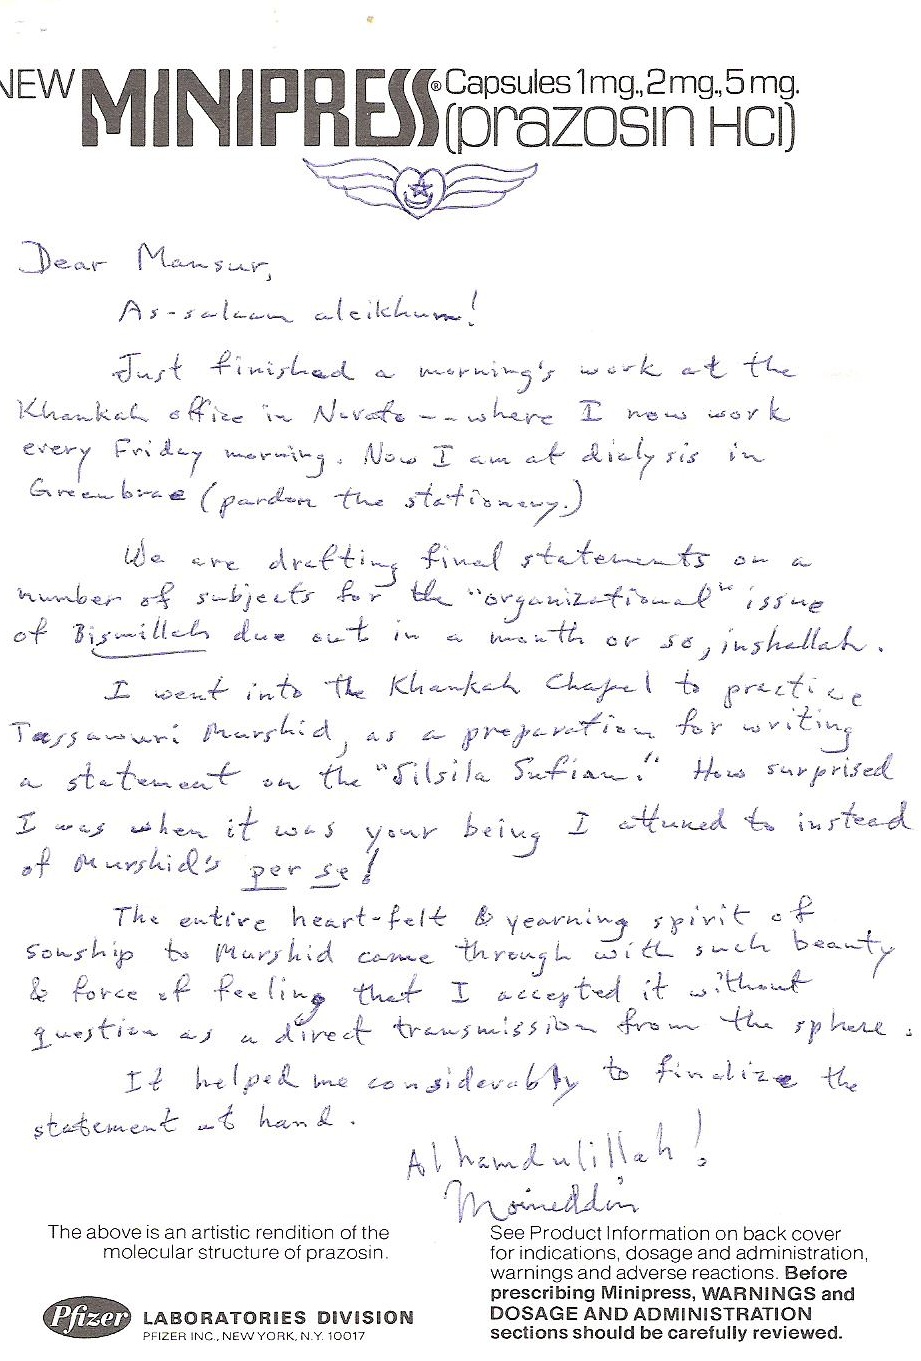 NEW MINIPRESS® Capsules 1mg., 2mg., 5mg.
(prazosin HCl)
Dear Mansur,
As-salaam aleikhum!
Just finished a morning's work at the
Khankah office in Novato -- where I now work
every Friday morning. Now I am at dialysis in
Greenbrae (pardon the stationery.)
We are drafting final statements on a
number of subjects for the "organizational" issue
of Bismillah due out in a month or so, inshallah.
I went into the Khankah Chapel to practice
Tassawuri Murshid, as a preparation for writing
a statement on the "Silsila Sufian." How surprised
I was when it was your being I attuned to instead
of Murshid's per se!
The entire heart-felt & yearning spirit of
sonship to Murshid came through with such beauty
& force of feeling that I accepted it without
question as a direct transmission from the sphere.
It helped me considerably to finalize the
statement at hand.
Alhamdulillah!
Moineddin
The above is an artistic rendition of the
molecular structure of prazosin.
Pfizer LABORATORIES DIVISION
PFIZER INC., NEW YORK, N.Y. 10017
See Product Information on back cover
for indications, dosage and administration,
warnings and adverse reactions. Before
prescribing Minipress, WARNINGS and
DOSAGE AND ADMINISTRATION
sections should be carefully reviewed.